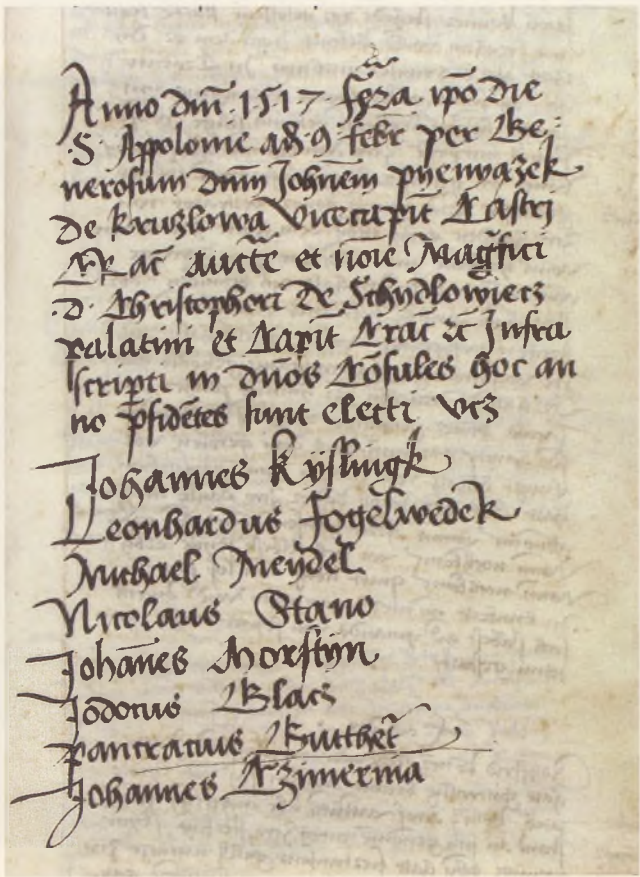 Anno dm̄ 1517 f̄c̄ra ip̄o die
S Appolonie ad 9 febr̄ per Ge-
nerosum dnm̄ Joh̄nem pyenyazek
de kruzlowa Vicecapit̄ Castri
ac̄ auctē et noīe Mag̃fici
D. Christophori de Schydlowiecz
palatini et Capit̄ Crac̄ ꝛc Infra
scripti in dn̄os Cōsules hoc an
no p̄sidētes sunt electi vcz
Johannes kyslingk
Leonhardus fogelwedek
Michael Meydel
Nicolaus Stano
Johān̄es Morstyn
Jodocus Glacz
pancracius Gutthet̄
Johannes Czimerma